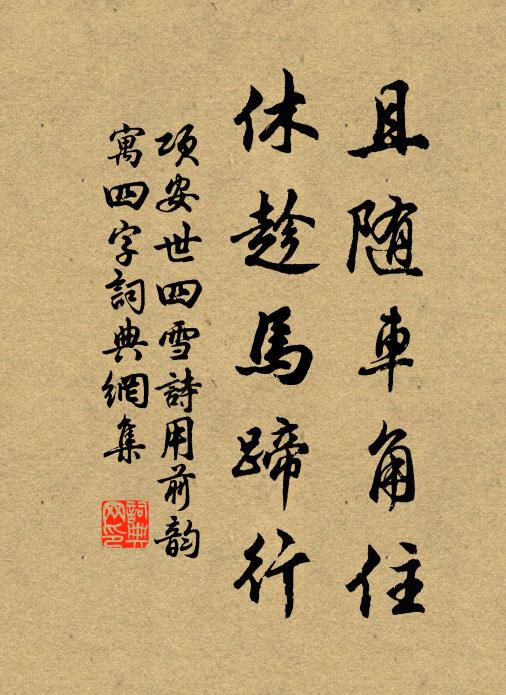 且随車角住
休趁馬蹄行
項安世四雪詩用前韵
寓四字詞典網集
詞典
网印